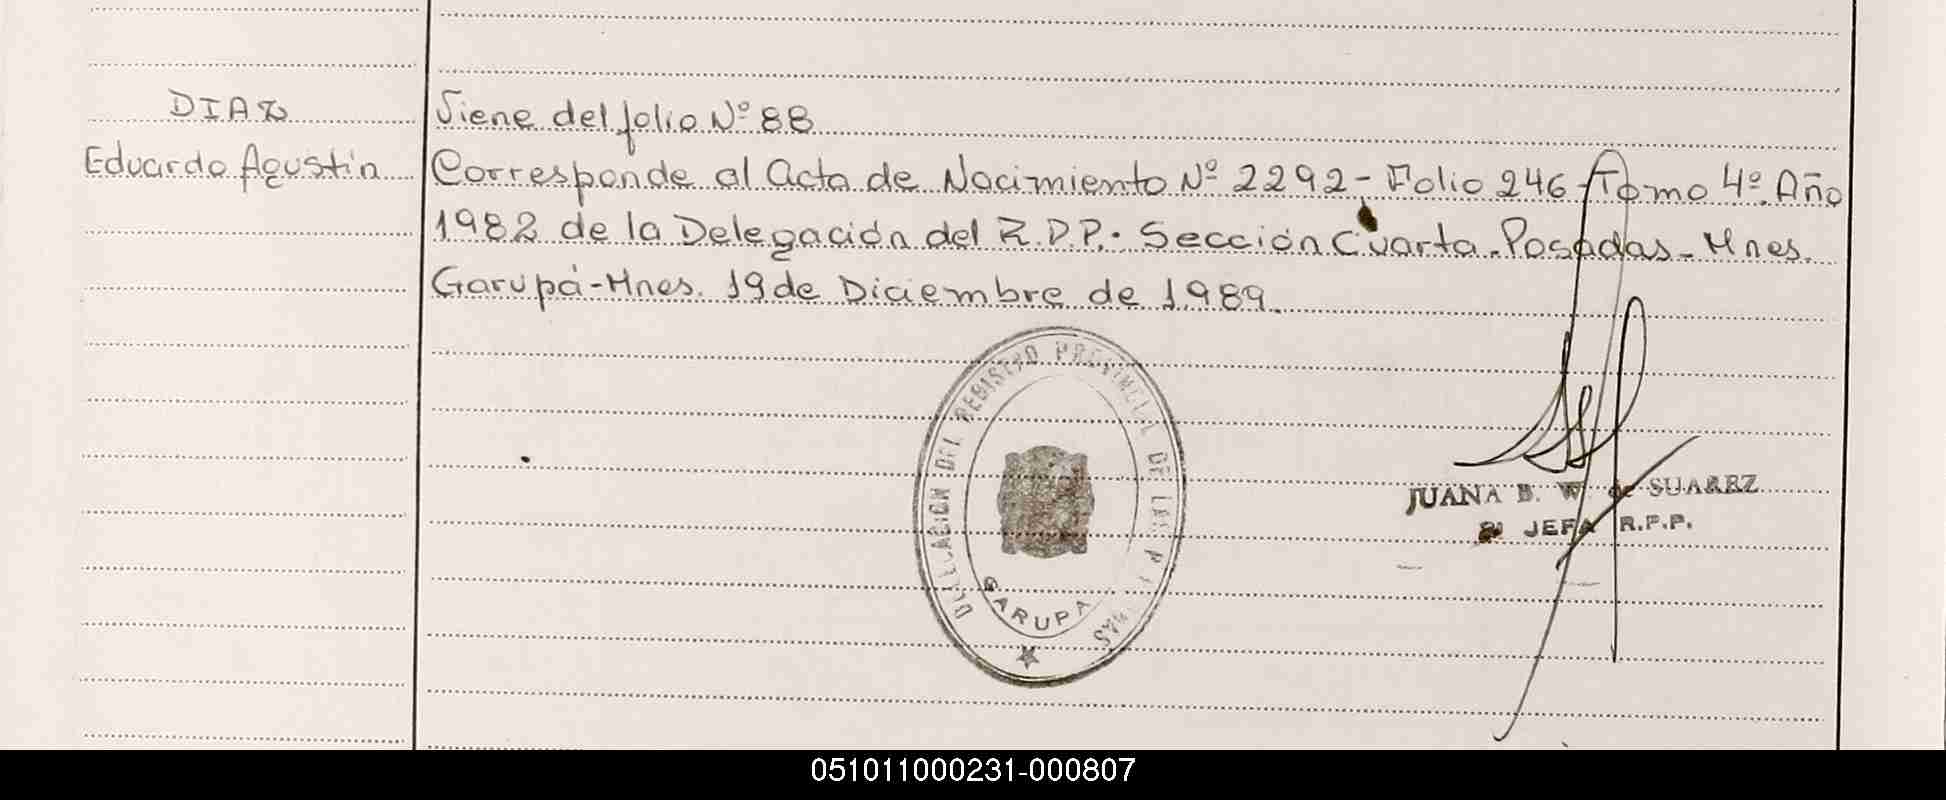 DIAZ
Eduardo Agustín
Viene del folio Nº 88
Corresponde al Acta de Nacimiento Nº 2292 - Folio 246 - Tomo 4º. Año
1982 de la Delegación del R.P.P. Sección Cuarta - Posadas - Mnes.
Garupá - Mnes. 19 de Diciembre de 1989.
DELEGACION DEL REGISTRO PROVINCIAL DE LAS PERSONAS
GARUPA
JUANA B. W. de SUAREZ
JEFA R.P.P.
051011000231-000807